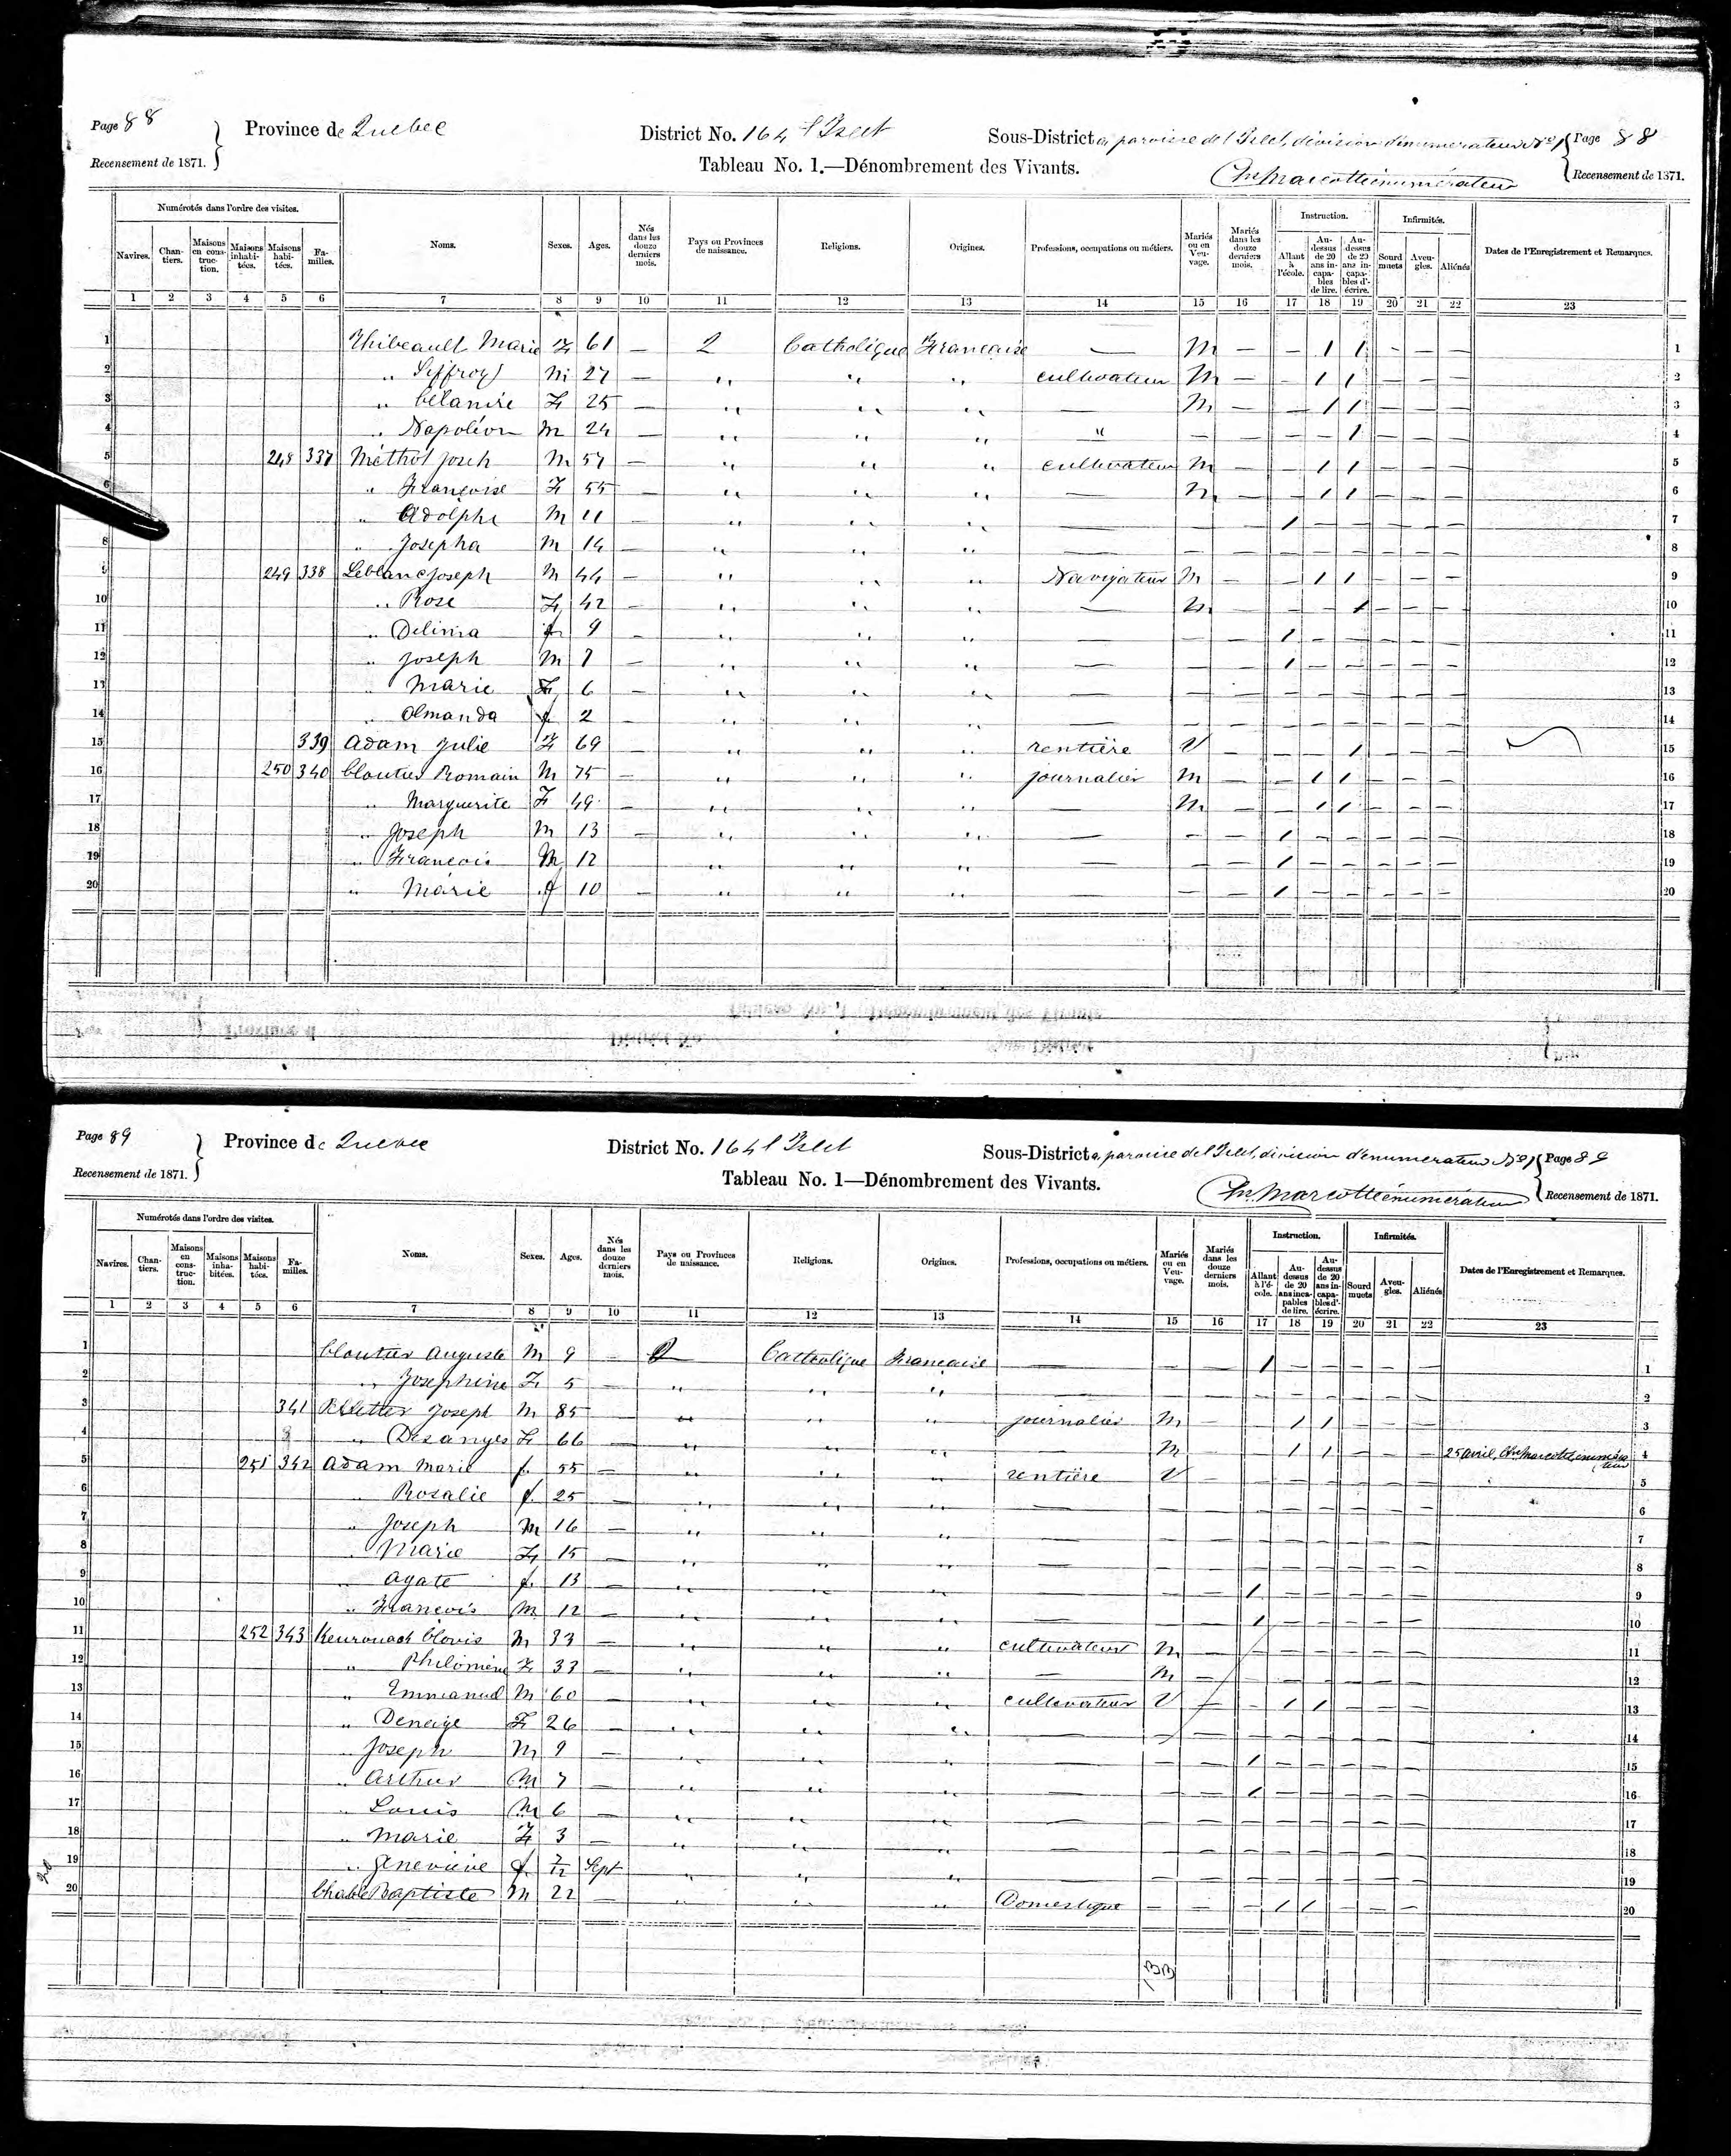 Page 88
Province de Quebec
District No. 164 l'Islet
Sous-District a, paroisse de l'Islet, division d'enumerateur No 1
Page 88
Recensement de 1871.
Tableau No. 1.—Dénombrement des Vivants.
Marcotte énumérateur
Recensement de 1871.
Numérotés dans l'ordre des visites.
Navires. Chantiers. Maisons en construction. Maisons inhabitées. Maisons habitées. Familles.
Noms. Sexes. Ages. Nés dans les douze derniers mois. Pays ou Provinces de naissance. Religions. Origines. Professions, occupations ou métiers. Mariés ou en Veuvage. Mariés dans les douze derniers mois.
Instruction. Allant à l'école. Au-dessus de 20 ans incapables de lire. Au-dessus de 20 ans incapables d'écrire.
Infirmités. Sourd muets Aveugles. Aliénés
Dates de l'Enregistrement et Remarques.
1 2 3 4 5 6 7 8 9 10 11 12 13 14 15 16 17 18 19 20 21 22 23
1 Thibeault Marie F 61 — 2 Catholique Francaise — M — — 1 1 — — — 1
2 " M 27 — " " " cultivateur M — — 1 1 — — — 2
3 " F 25 — " " " — M — — 1 1 — — — 3
4 " Napoléon M 24 — " " " " — — — — 1 — — — 4
5 248 337 Méthot M 57 — " " " cultivateur M — — 1 1 — — — 5
6 " Françoise F 55 — " " " — M — — 1 1 — — — 6
" Adolphe M 11 — " " " — — — 1 — — — — — 7
8 " Josepha M 14 — " " " — — — — — — — — — 8
9 249 338 Leblanc Joseph M 44 — " " " Navigateur M — — 1 1 — — — 9
10 " Rose F 42 — " " " — M — — — 1 — — — 10
11 " Delima f 9 — " " " — — — 1 — — — — — 11
12 " Joseph M 7 — " " " — — — 1 — — — — — 12
13 " Marie F 6 — " " " — — — — — — — — — 13
14 " Olmanda f 2 — " " " — — — — — — — — — 14
15 339 Adam Julie F 69 — " " " rentière V — — — 1 — — — 15
16 250 340 Cloutier Romain M 75 — " " " journalier M — — 1 1 — — — 16
17 " Marguerite F 49 — " " " — M — — 1 1 — — — 17
18 " Joseph M 13 — " " " — — — 1 — — — — — 18
19 " Francois M 12 " " " — — — 1 — — — — — 19
20 " Marie f 10 — " " " — — — 1 — — — — — 20
Page 89
Province de Quebec
District No. 164 l'Islet
Sous-District a, paroisse de l'Islet, division d'enumerateur No 1
Page 89
Recensement de 1871.
Tableau No. 1—Dénombrement des Vivants.
Marcotte énumérateur
Recensement de 1871.
Numérotés dans l'ordre des visites.
Navires. Chantiers. Maisons en construction. Maisons inhabitées. Maisons habitées. Familles.
Noms. Sexes. Ages. Nés dans les douze derniers mois. Pays ou Provinces de naissance. Religions. Origines. Professions, occupations ou métiers. Mariés ou en Veuvage. Mariés dans les douze derniers mois.
Instruction. Allant à l'école. Au-dessus de 20 ans incapables de lire. Au-dessus de 20 ans incapables d'écrire.
Infirmités. Sourd muets Aveugles. Aliénés
Dates de l'Enregistrement et Remarques.
1 2 3 4 5 6 7 8 9 10 11 12 13 14 15 16 17 18 19 20 21 22 23
1 Cloutier Auguste M 9 — 2 Catholique Francaise — — — 1 — — — — — 1
2 " Josephine F 5 — " " " — — — — — — — — — 2
3 341 Pelletier Joseph M 85 — " " " journalier M — — 1 1 — — — 3
4 " Desanges F 66 — " " " — M — — 1 1 — — — 25 avril, Marcotte, enumérateur 4
5 251 342 Adam Marie f 55 — " " " rentière V — — — — — — — 5
6 " Rosalie f 25 — " " " — — — — — — — — — 6
7 " Joseph M 16 — " " " — — — — — — — — — 7
8 " Marie F 15 — " " " — — — — — — — — — 8
9 " Agate f 13 — " " " — — — 1 — — — — — 9
10 " Francois M 12 — " " " — — — 1 — — — — — 10
11 252 343 Keurouack Clovis M 33 — " " " cultivateur M — — — — — — — 11
12 " Philomène F 33 — " " " — M — — — — — — — 12
13 " Emmanuel M 60 — " " " cultivateur V — — 1 1 — — — 13
14 " Deneige F 26 — " " " — — — — — — — — — 14
15 " Joseph M 9 — " " " — — — 1 — — — — — 15
16 " Arthur M 7 — " " " — — — 1 — — — — — 16
17 " Louis M 6 — " " " — — — — — — — — — 17
18 " Marie F 3 — " " " — — — — — — — — — 18
19 " Genevieve f 7/12 Sept " " " — — — — — — — — — 19
20 Baptiste M 22 — " " " Domestique — — — 1 1 — — — 20